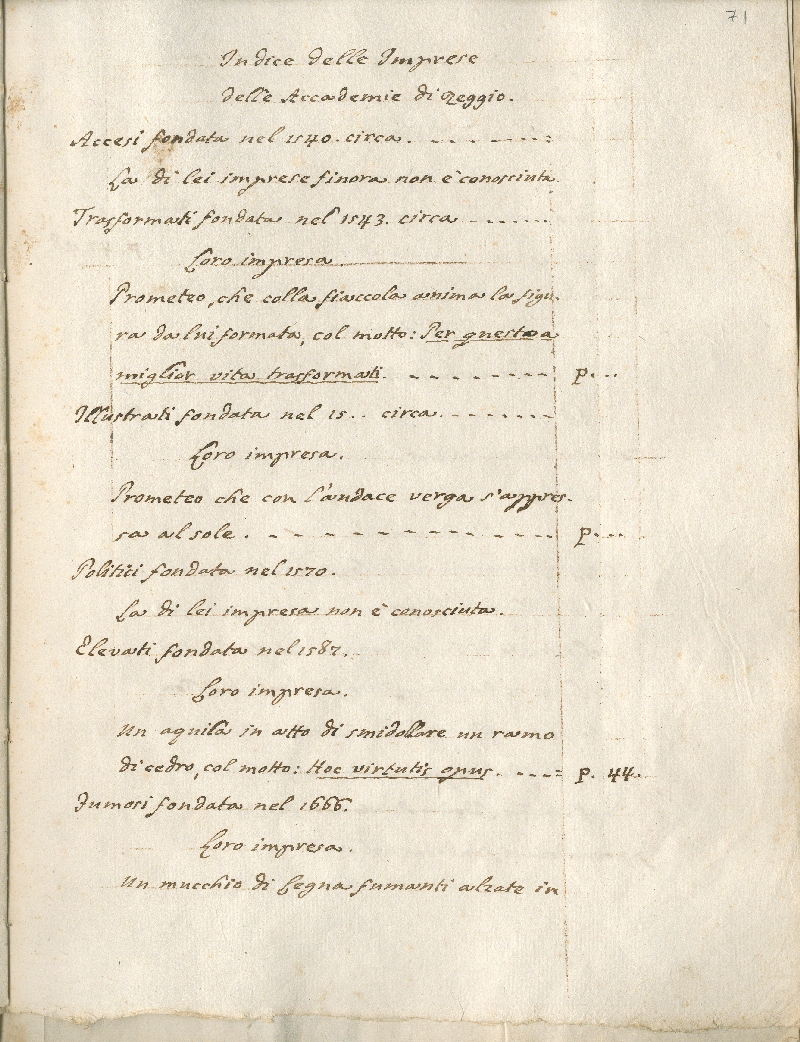 71
Indice delle Imprese
delle Accademie di Reggio.
Accesi fondata nel 1540. circa. - - - - - - :
La di lei imprese finora non è conosciuta
Trasformati fondata nel 1543. circa - - - - - -
Loro impresa.
Prometeo, che colla fiaccola anima la figu-
ra da lui formata, col motto: Per questo a
miglior vita trasformati. - - - - - - - - - p. ...
Illustrati fondata nel 15.. circa. - - - - - - -
Loro impresa.
Prometeo che con l'audace verga s'appres-
sa al sole. - - - - - - - - - - - - p. ...
Politici fondata nel 1570.
La di lei impresa non è conosciuta.
Elevati fondata nel 1587.
Loro impresa.
Un aquila in atto di smidollare un ramo
di cedro, col motto: Hoc virtutis opus. - - - = p. 44.
Fumosi fondata nel 1666.
Loro impresa.
Un mucchio di Legna fumanti alzate in